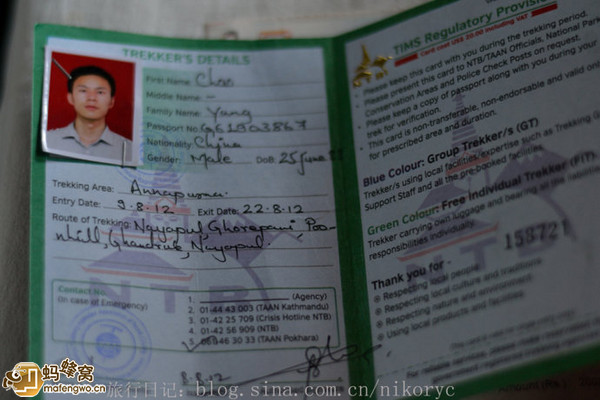 TREKKER'S DETAILS
First Name: Chao
Middle Name: –
Family Name: Yang
Passport No:
Nationality: China
Gender: Male DoB: 25 June
Trekking Area: Annapurna
Entry Date: 9.8.12 Exit Date: 22.8.12
Route of Trekking Nayapul Ghorepani Poo-
nhill, Ghandruk, Nayapul.
Contact No:
(In case of Emergency)
1. (Agency)
2. 01-44 43 003 (TAAN Kathmandu)
3. 01-42 25 709 (Crisis Hotline NTB)
4. 01-42 56 909 (NTB)
46 30 33 (TAAN Pokhara)
8.8.12
NTB
TIMS Regulatory Provision
Card cost US$ 20.00 including VAT
Please keep this card with you during the trekking period.
Please present this card to NTB/TAAN Officials, National Park,
Conservation Areas and Police Check Posts on request.
Please keep a copy of passport along with you during your
trek for verification.
This card is non-transferable, non-endorsable and valid only
for prescribed area and duration.
Blue Colour: Group Trekker/s (GT)
Trekker/s using local facilities/expertise such as Trekking
Support Staff and all the pre-booked facilities
Green Colour: Free Individual Trekker (FIT)
Trekker carrying own luggage and bearing all the
responsibilities individually.
158721
Thank you for -
Respecting local people
Respecting local culture and traditions
Respecting nature and environment
Using local products and facilities
蚂蜂窝
mafengwo.cn
旅行日记：blog.sina.com.cn/nikoryc